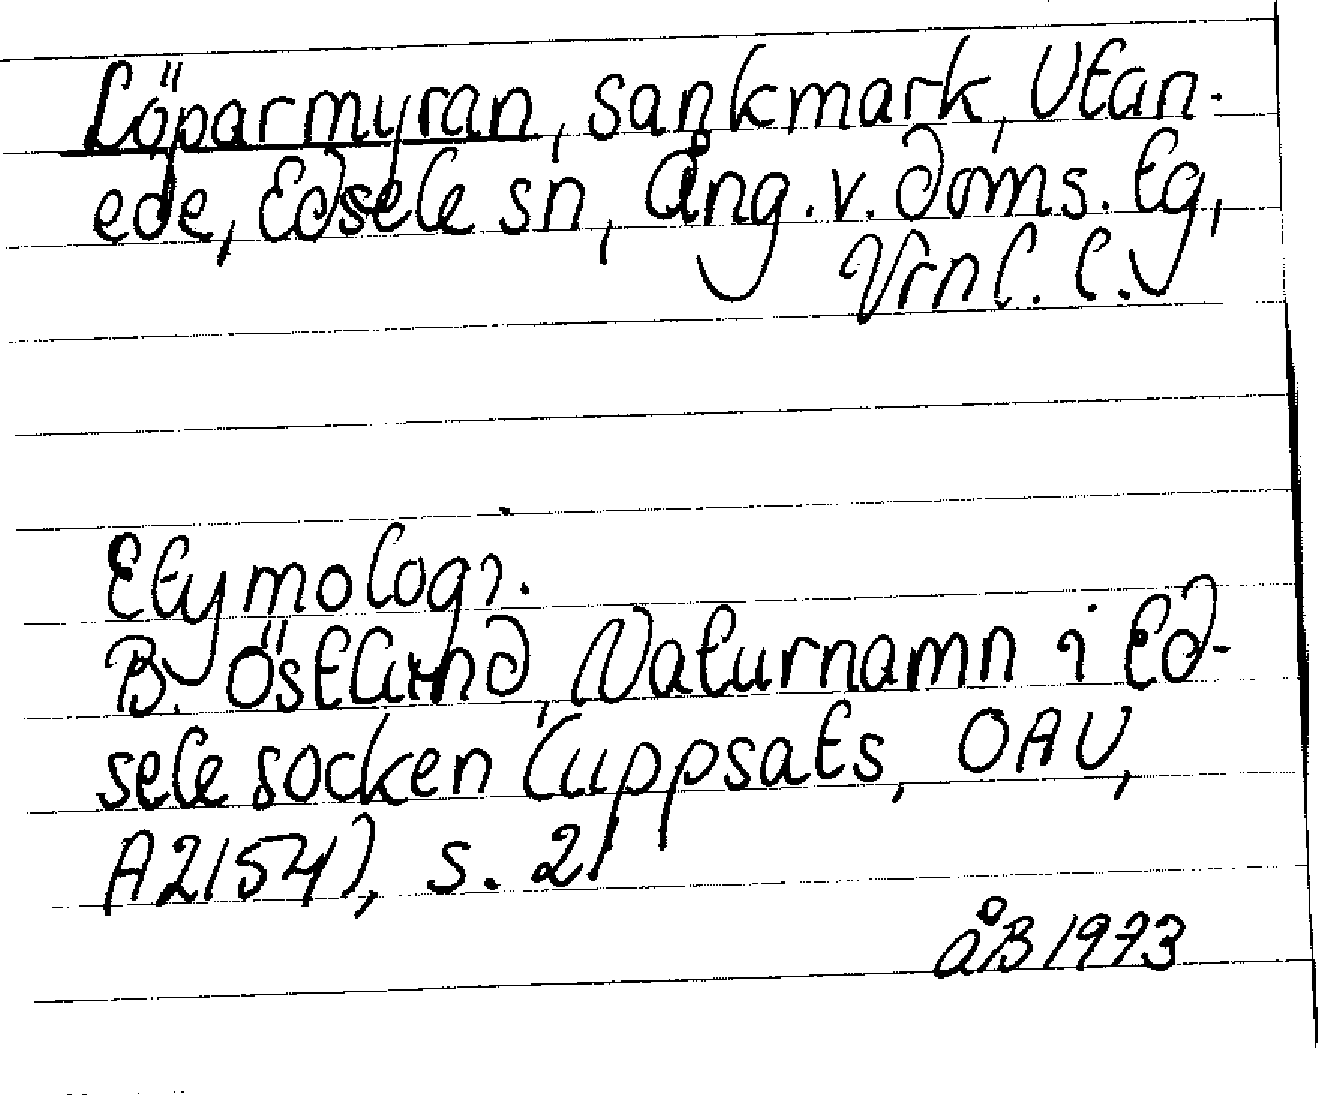 Löparmyran, sankmark, Utan-
ede, Edsele sn, Ång. v. doms. tg,
Vrnl. l.
Etymologi.
B. Östlund, Naturnamn i Ed-
sele socken (uppsats, OAU,
A2154), s. 21
ÅB 1973